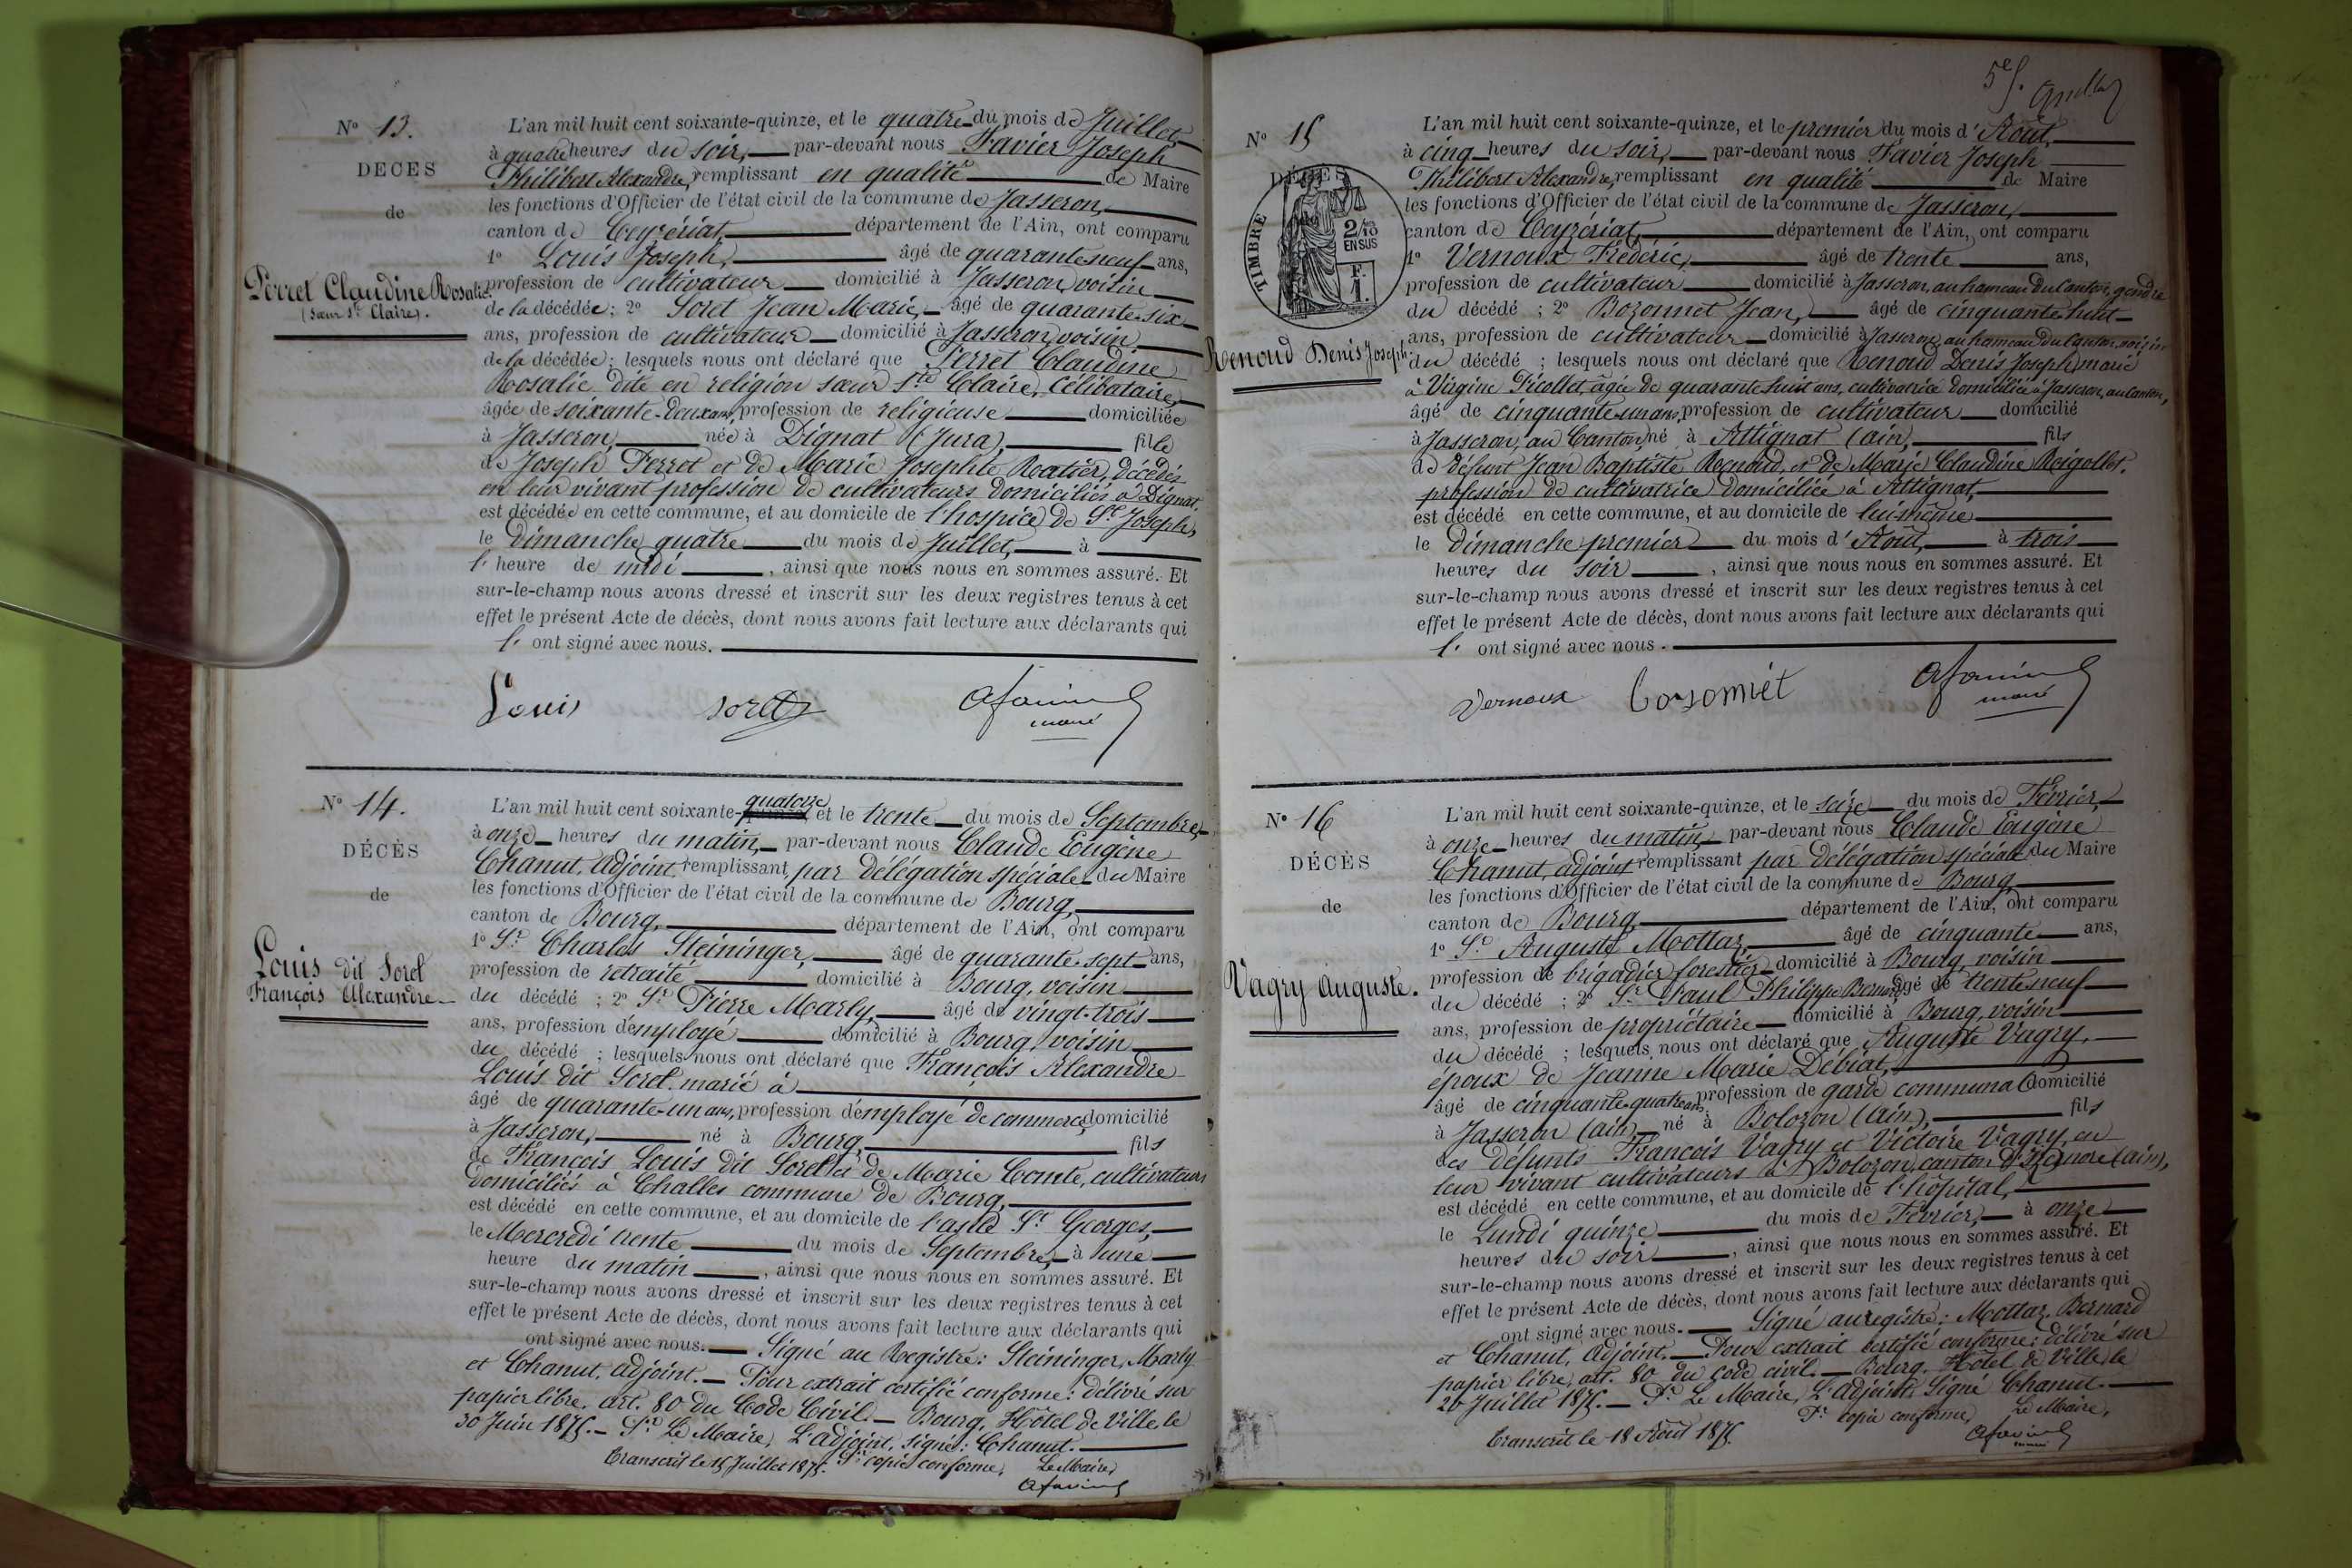 N° 13.
DÉCÈS
de
Perret Claudine Rosalie
(sœur Ste Claire).
L'an mil huit cent soixante-quinze, et le quatre du mois de Juillet,
à quatre heures du soir, par-devant nous Favier Joseph
Philibert Alexandre, remplissant en qualité de Maire
les fonctions d'Officier de l'état civil de la commune de Jasseron,
canton de Ceyzériat, département de l'Ain, ont comparu
1° Louis Joseph, âgé de quarante-neuf ans,
profession de cultivateur domicilié à Jasseron, voisin
de la décédée; 2° Soret Jean Marie, âgé de quarante-six
ans, profession de cultivateur domicilié à Jasseron, voisin
de la décédée; lesquels nous ont déclaré que Perret Claudine
Rosalie, dite en religion sœur Ste Claire, célibataire,
âgée de soixante-deux ans, profession de religieuse domiciliée
à Jasseron, née à Dignat (Jura), fille
de Joseph Perret et de Marie Josephte Ratier, décédés
en leur vivant profession de cultivateurs domiciliés à Dignat,
est décédée en cette commune, et au domicile de l'hospice de St Joseph,
le dimanche quatre du mois de Juillet, à
l'heure de midi, ainsi que nous nous en sommes assuré. Et
sur-le-champ nous avons dressé et inscrit sur les deux registres tenus à cet
effet le présent Acte de décès, dont nous avons fait lecture aux déclarants qui
l' ont signé avec nous.
Louis Soret afavier
maire
N° 14.
DÉCÈS
de
Louis dit Soret
François Alexandre
quatorze
L'an mil huit cent soixante-quinze et le trente du mois de Septembre,
à onze heures du matin, par-devant nous Claude Eugène
Chanut, adjoint remplissant, par délégation spéciale du Maire
les fonctions d'Officier de l'état civil de la commune de Bourg,
canton de Bourg, département de l'Ain, ont comparu
1° Sr Charles Steininger, âgé de quarante-sept ans,
profession de retraité domicilié à Bourg, voisin
du décédé ; 2° Sr Pierre Marly, âgé de vingt-trois
ans, profession d'employé domicilié à Bourg, voisin
du décédé ; lesquels nous ont déclaré que François Alexandre
Louis dit Soret, marié à
âgé de quarante-un ans, profession d'employé de commerce, domicilié
à Jasseron, né à Bourg, fils
de François Louis dit Soret et de Marie Comte, cultivateurs
domiciliés à Challes commune de Bourg,
est décédé en cette commune, et au domicile de l'asile St Georges,
le Mercredi trente du mois de Septembre, à une
heure du matin, ainsi que nous nous en sommes assuré. Et
sur-le-champ nous avons dressé et inscrit sur les deux registres tenus à cet
effet le présent Acte de décès, dont nous avons fait lecture aux déclarants qui
ont signé avec nous. Signé au Registre : Steininger, Marly
et Chanut, adjoint. Pour extrait certifié conforme : délivré sur
papier libre, art. 80 du Code Civil. Bourg, Hôtel de Ville le
30 Juin 1875. Pr Le Maire, L'adjoint, signé : Chanut.
Transcrit le 15 Juillet 1875. Pr copie conforme, Le Maire,
afavier
5e f.
N° 15
DÉCÈS
TIMBRE
2/10
EN SUS
F.
1.
Renoud Denis Joseph
L'an mil huit cent soixante-quinze, et le premier du mois d'Août,
à cinq heures du soir, par-devant nous Favier Joseph
Philibert Alexandre, remplissant en qualité de Maire
les fonctions d'Officier de l'état civil de la commune de Jasseron,
canton de Ceyzériat, département de l'Ain, ont comparu
1° Vernoux Frédéric, âgé de trente ans,
profession de cultivateur domicilié à Jasseron, au hameau du Canton, gendre
du décédé ; 2° Bozonnet Jean, âgé de cinquante-huit
ans, profession de cultivateur domicilié à Jasseron, au hameau du Canton, voisin
du décédé ; lesquels nous ont déclaré que Renoud Denis Joseph, marié
à Virginie Picollet, âgée de quarante-huit ans, cultivatrice domiciliée à Jasseron, au Canton,
âgé de cinquante-un ans, profession de cultivateur domicilié
à Jasseron, au Canton, né à Attignat (ain), fils
de défunt Jean Baptiste Renoud, et de Marie Claudine Reigollet,
profession de cultivatrice domiciliée à Attignat,
est décédé en cette commune, et au domicile de lui-même
le dimanche premier du mois d'Août, à trois
heures du soir, ainsi que nous nous en sommes assuré. Et
sur-le-champ nous avons dressé et inscrit sur les deux registres tenus à cet
effet le présent Acte de décès, dont nous avons fait lecture aux déclarants qui
l' ont signé avec nous.
Vernoux Bosonnet afavier
maire
N° 16
DÉCÈS
de
Vagry Auguste.
L'an mil huit cent soixante-quinze, et le seize du mois de Février,
à onze heures du matin, par-devant nous Claude Eugène
Chanut, adjoint remplissant par délégation spéciale du Maire
les fonctions d'Officier de l'état civil de la commune de Bourg,
canton de Bourg, département de l'Ain, ont comparu
1° Sr Auguste Mottaz, âgé de cinquante ans,
profession de brigadier forestier domicilié à Bourg, voisin
du décédé ; 2° Sr Paul Philippe Bernard, âgé de trente-neuf
ans, profession de propriétaire domicilié à Bourg, voisin
du décédé ; lesquels nous ont déclaré que Auguste Vagry,
époux de Jeanne Marie Débiat,
âgé de cinquante-quatre ans, profession de garde communal domicilié
à Jasseron (ain), né à Bolozon (ain), fils
des défunts François Vagry et Victoire Vagry, en
leur vivant cultivateurs à Bolozon, canton d'Izernore (ain),
est décédé en cette commune, et au domicile de l'hôpital,
le Lundi quinze du mois de Février, à onze
heures du soir, ainsi que nous nous en sommes assuré. Et
sur-le-champ nous avons dressé et inscrit sur les deux registres tenus à cet
effet le présent Acte de décès, dont nous avons fait lecture aux déclarants qui
ont signé avec nous. Signé au registre : Mottaz, Bernard
et Chanut, adjoint. Pour extrait certifié conforme : délivré sur
papier libre, art. 80 du Code civil. Bourg, Hôtel de Ville, le
26 Juillet 1875. Pr Le Maire, L'adjoint, Signé Chanut.
Pr copie conforme, Le Maire,
Transcrit le 18 Août 1875. afavier
maire